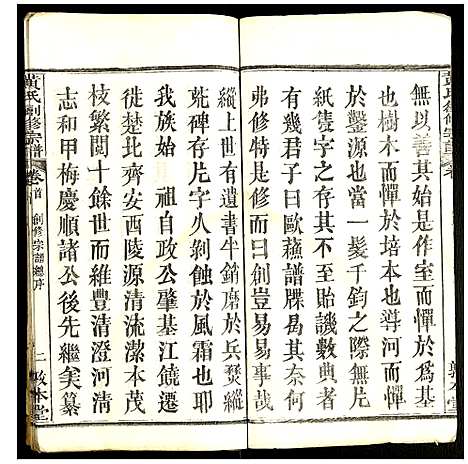 無以善其始是作室而憚於爲基
也樹木而憚於培本也導河而憚
於鑿源也當一髮千鈞之際無片
紙隻字可以爲文獻無數典者其
有幾幾君子曰歐蘇譜牒曷其奈何
弗修特是修而曰創豈易易事哉
縱上世有遺書牛銷磨於兵燹縱
荒碑存片字久剝蝕於風霜也耶
我族始 祖自政公肇基江饒遷
徙楚北齊安西陵源清流潔本茂
枝繁閱十餘世而維豐清澄河清
志和甲梅慶順諸公後先繼美纂
黃氏創修宗譜 卷首 創修宗譜總序 二 敦本堂